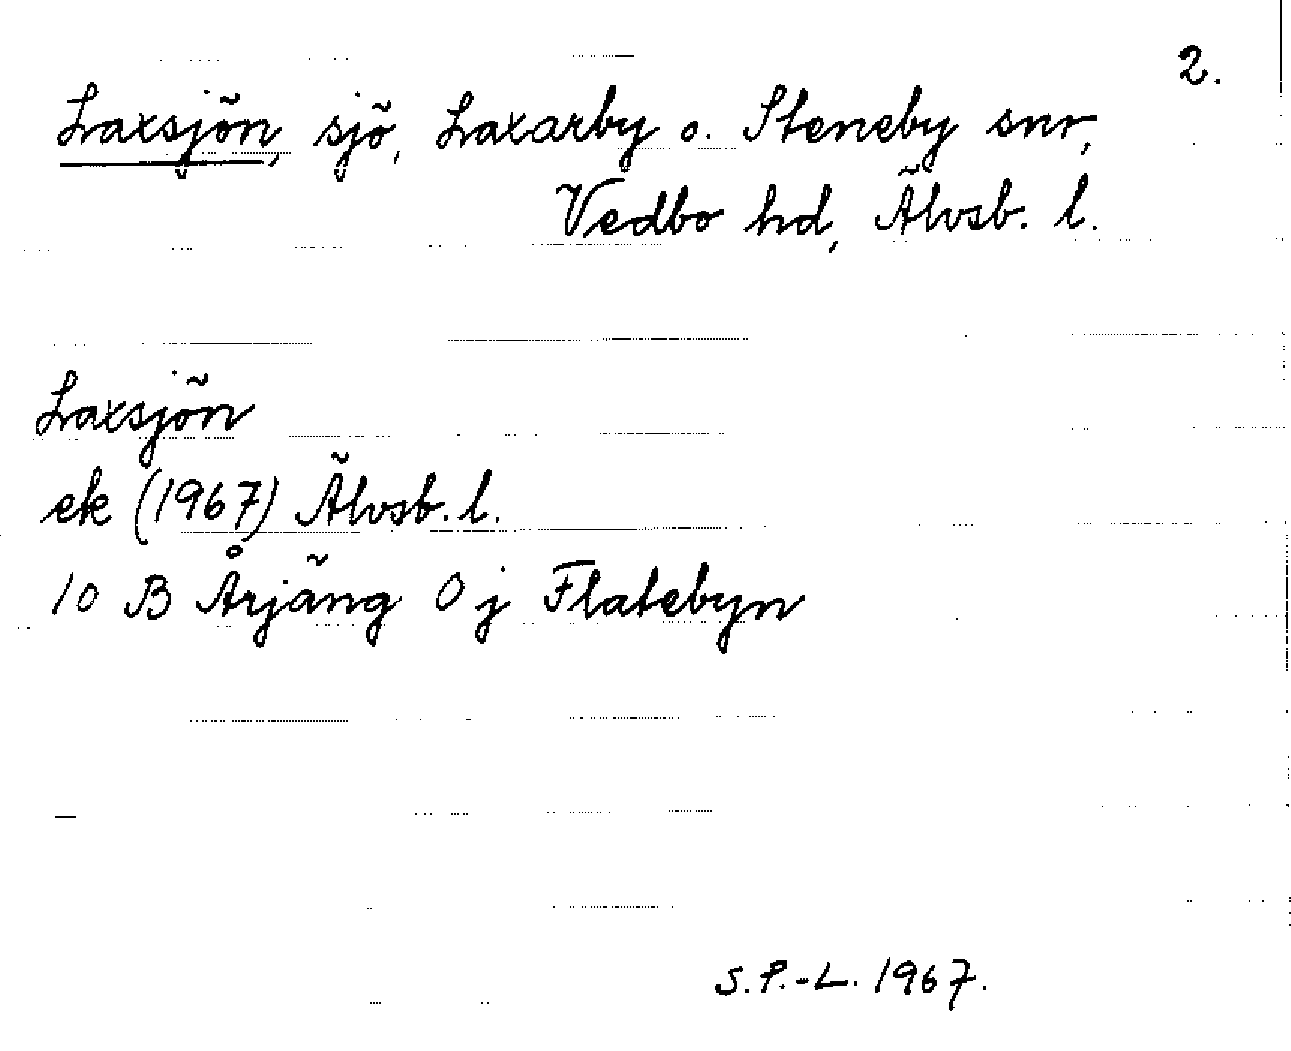 2.
Laxsjön, sjö, Laxarby o. Steneby snr,
Vedbo hd, Älvsb. l.
Laxsjön
ek (1967) Älvsb. l.
10 B Årjäng 0 j Flatebyn
S.P.-L. 1967.